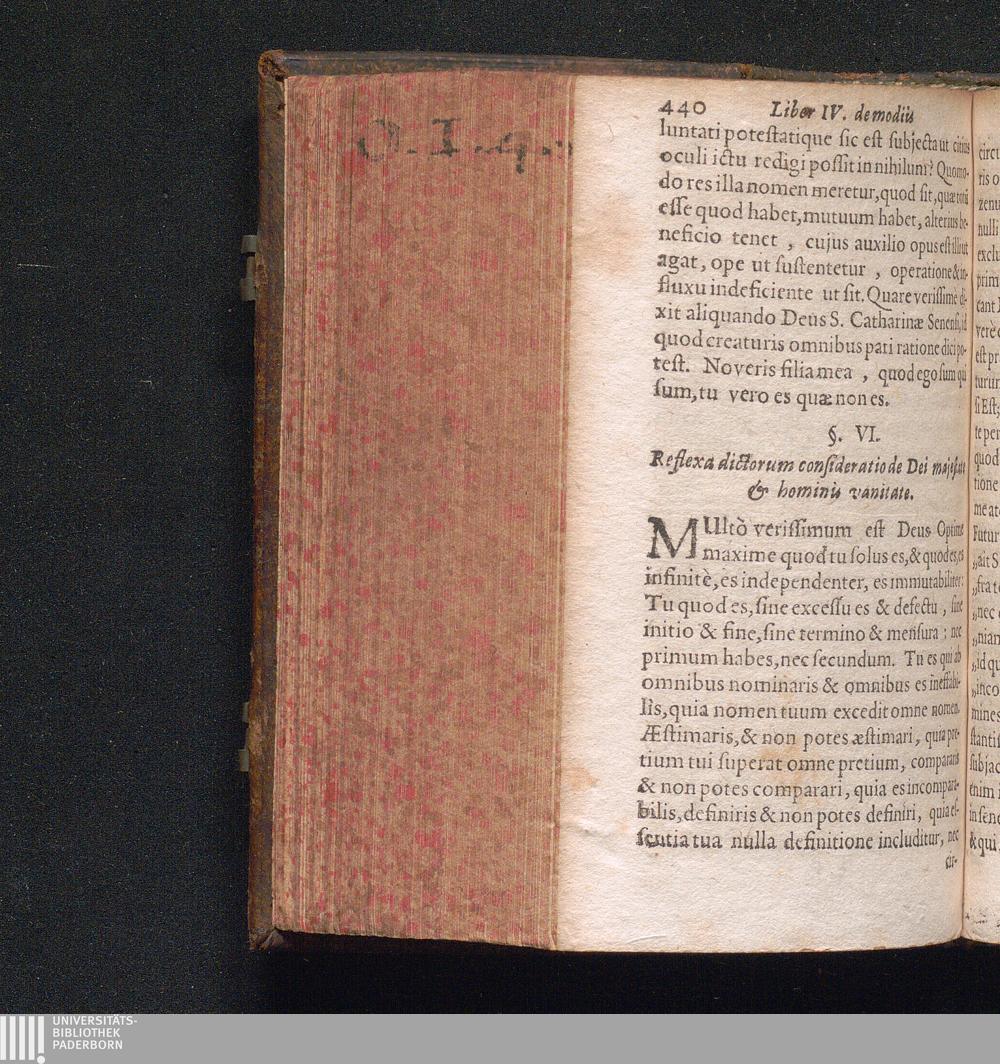 440 Liber IV. de modiis
luntati potestatique sic est subjecta ut citius
oculi ictu redigi possit in nihilum? Quomo-
do res illa nomen meretur, quod sit, quæ totū
esse quod habet, mutuum habet, alterius be-
neficio tenet , cujus auxilio opus est illi ut
agat, ope ut sustentetur , operatione & in-
fluxu indeficiente ut sit. Quare verissimè di-
xit aliquando Deus S. Catharinæ Senensi, id
quod creaturis omnibus pari ratione dici po-
test. Noveris filia mea , quod ego sum qui
sum, tu vero es quæ non es.
§. VI.
Reflexa dictorum consideratio de Dei majestate
& hominis vanitate.
MUltò verissimum est Deus Optime
maxime quod tu solus es, & quod es, es
infinitè, es independenter, es immutabiliter:
Tu quod es, sine excessu es & defectu , sine
initio & fine, sine termino & mensura : nec
primum habes, nec secundum. Tu es qui ab
omnibus nominaris & omnibus es ineffabi-
lis, quia nomen tuum excedit omne nomen.
Æstimaris, & non potes æstimari, quia pre-
tium tui superat omne pretium, compararis
& non potes comparari, quia es incompara-
bilis, definiris & non potes definiri, quia es-
sentia tua nulla definitione includitur, nec
cir-
UNIVERSITÄTS-
BIBLIOTHEK
PADERBORN